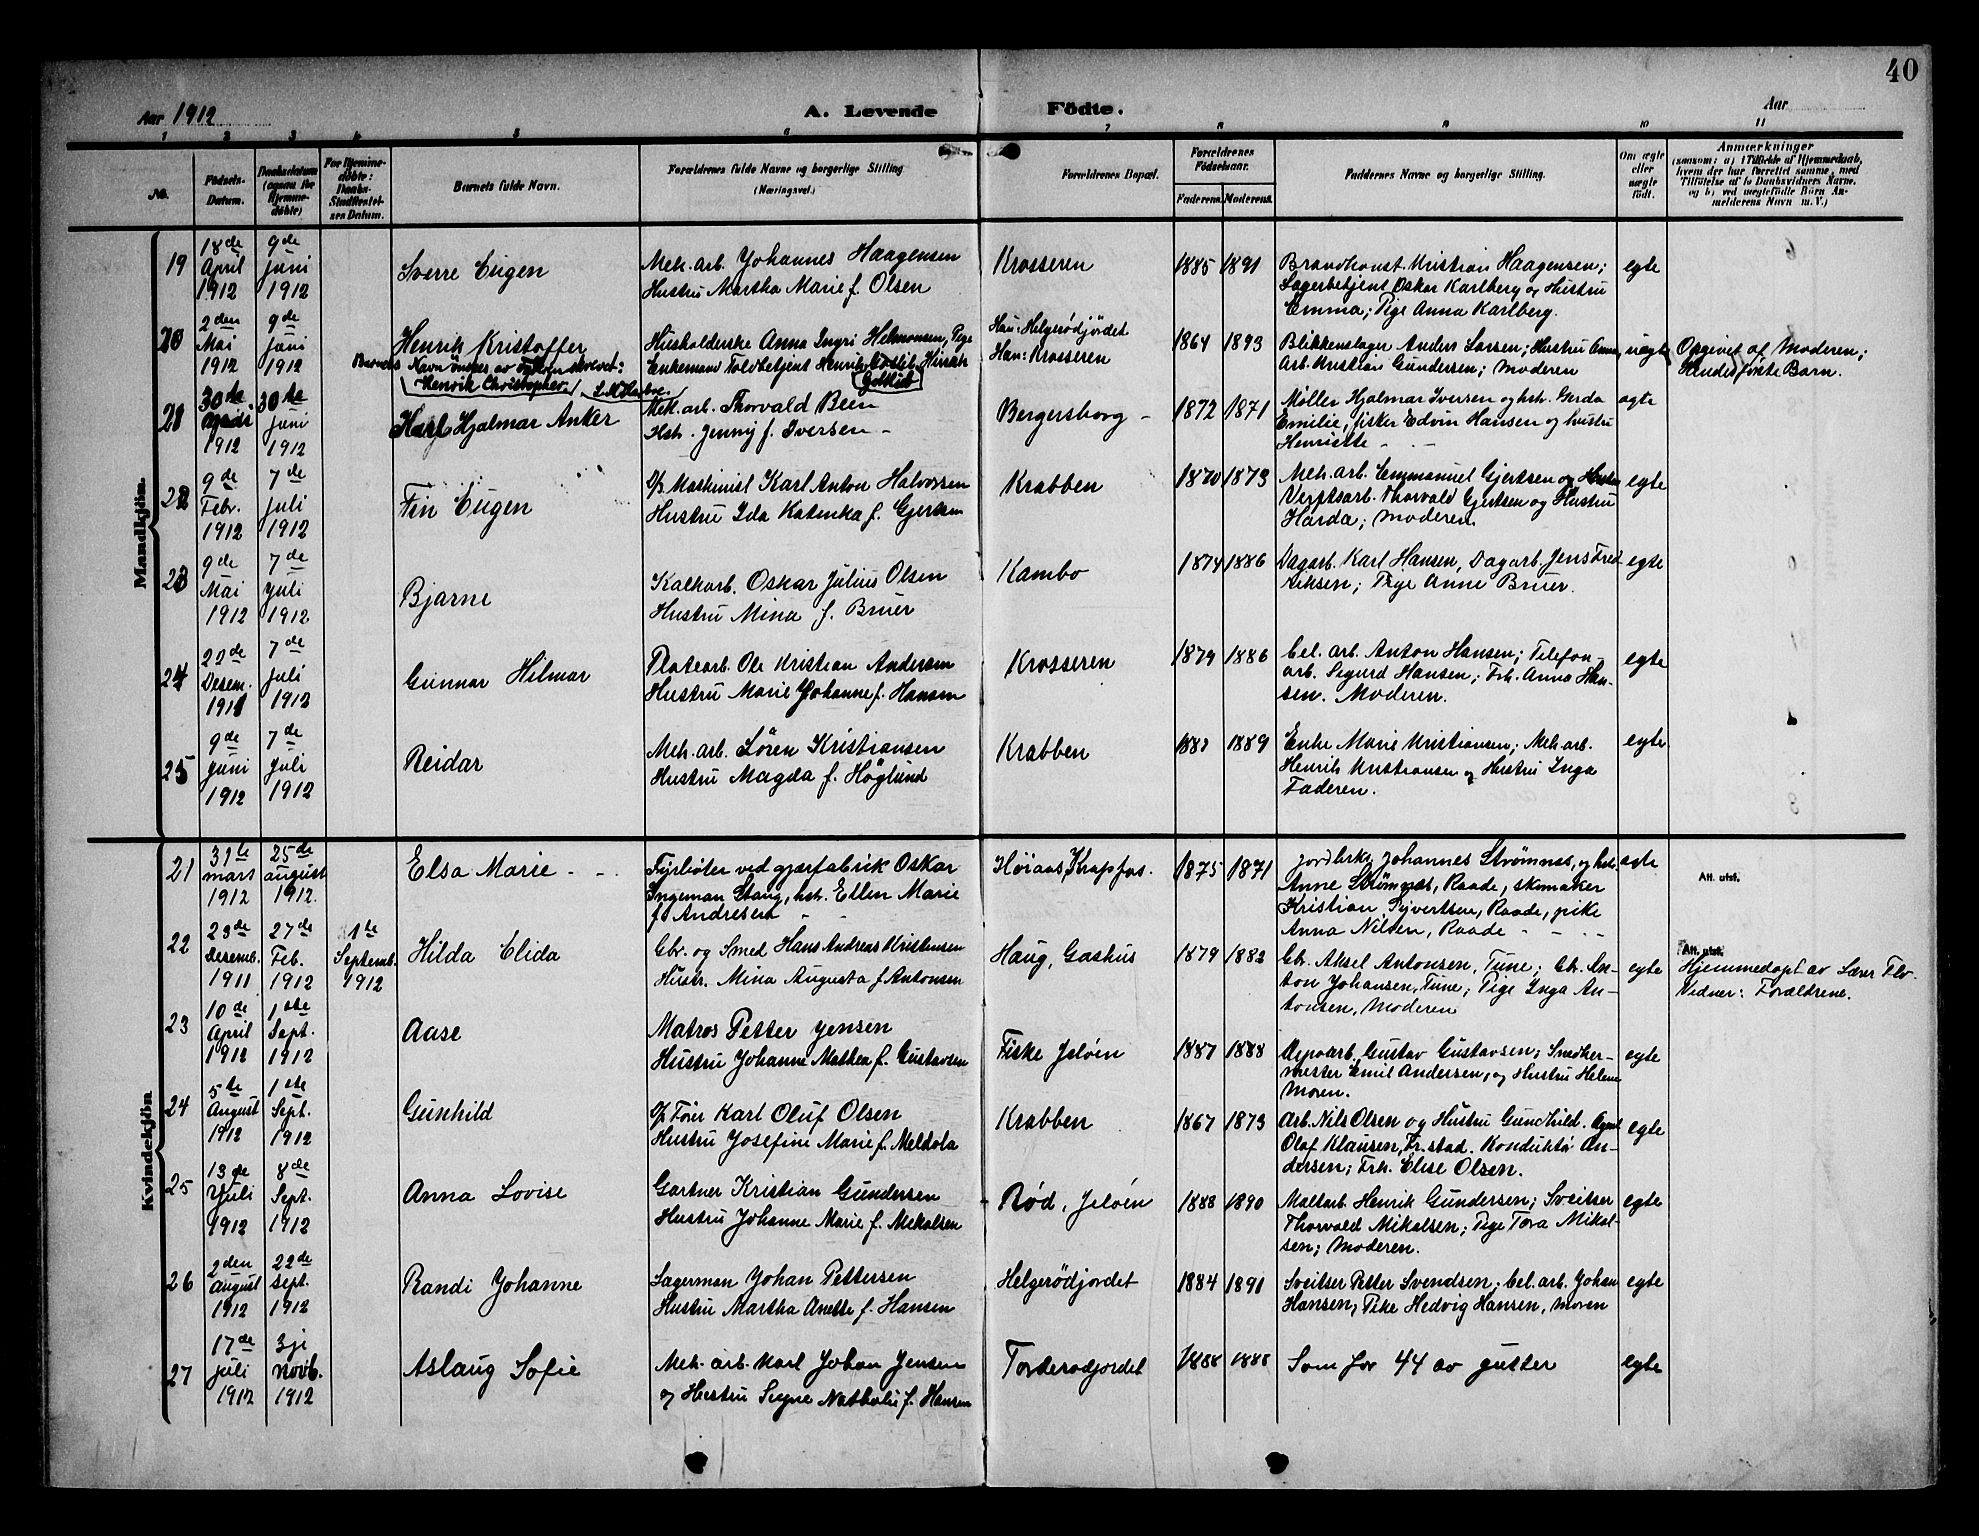 40
Aar 1912
A. Levende Födte.
Aar
1 2 3 4 5 6 7 8 9 10 11
No.
Födsels-
Datum.
Daabsdatum
(ogsaa for
Hjemme-
döbte)
For Hjemme-
döbte:
Daabs-
Stadfæstel-
ses Datum.
Barnets fulde Navn.
Forældrenes fulde Navne og borgerlige Stilling
(Næringsvei.)
Forældrenes Bopæl.
Forældrenes
Födselsaar.
Faderens. Moderens.
Faddernes Navne og borgerlige Stilling.
Om ægte
eller
uægte
födt.
Anmærkninger
(saasom: a) i Tilfælde af Hjemmedaab,
hvem der har forrettet samme, med
Tilföielse af to Daabsvidners Navne,
og b) ved uægtefödte Börn An-
melderens Navn m. V.)
Mandkjön.
19
18de
April
1912
9de
juni
1912
Sverre Eugen
Mek. arb. Johannes Haagensen
Hustru Martha Marie f. Olsen
Krosseren
1885 1891
Brandkonst. Kristian Haagensen;
Lagerbetjent Oskar Karlberg og Hustru
Emma; Pige Anna Karlberg.
egte
20
2den
Mai
1912
9de
juni
1912
Henrik Kristoffer
Barnets Navn ønskes av skrevet:
Henrik Christopher
Husholderske Anna Ingri Helmonsen, Pige
Enkemand Toldbetjent Henrik
Gotlieb
Hun: Helgerödjordet
Han: Krosseren
1864 1893
Blikkenslager Anders Larsen; Hustru Anna,
Arb. Kristian Gundersen; Moderen
uegte
Opgivet af Moderen;
Barn.
21
30te
April
1912
30te
juni
1912
Karl Hjalmar Anker
Mek. arb. Thorvald Been
Hst. Jenny f. Iversen -
Bergersborg -
1872 1871
Møller Hjalmar Iversen og hst. Gerda
Emilie, fisker Edvin Hansen og hustru
Henriette - -
egte
22
9de
Febr.
1912
7de
juli
1912
Fin Eugen
Maskinist Karl Anton Halvorsen
Hustru Ida Katinka f. Gjertsen
Krabben
1870 1873
Mek. arb. Emmanuel Gjertsen og Hustru
Verftsarb. Thorvald Gjertsen og Hustru
Harda; Moderen
egte
23
9de
Mai
1912
7de
juli
1912
Bjarne
Kalkarb. Oskar Julius Olsen
Hustru Mina f. Bruer
Kambo
1874 1886
Dagarb. Karl Hansen, Dagarb. Jens Fred-
riksen; Pige Anne Bruer.
egte
24
22de
Desem.
1911
7de
juli
1912
Gunnar Hilmar
Platearb. Ole Kristian Andersen
Hustru Marie Johanne f. Hansen
Krosseren
1879 1886
Cel. arb. Anton Hansen; Telefon-
arb. Sigurd Hansen; Frk. Anna Han-
sen. Moderen.
egte
25
9de
juni
1912
7de
juli
1912
Reidar
Mek. arb. Sören Kristiansen
Hustru Magda f. Höglund
Krabben
1889
Enke Marie Kristiansen; Mek. arb.
Henrik Kristiansen og Hustru Inga
Faderen.
egte
Kvindekjön.
21
31te
mars
1912
25de
august
1912.
Elsa Marie - -
Fyrbøter ved gjærfabrik Oskar
Ingeman Stang, hst. Ellen Marie
f. Andresen - -
Høiaas, Krapfos.
1875 1871
Jordbrk. Johannes Strømnes, og hst.
Anne Strømnes, Raade, skomaker
Kristian Syvertsen, Raade, pike
Anna Nilsen, Raade - - - -
egte
Att. utst.
22
23de
desemb.
1911
27de
Feb.
1912
1ste
Septemb.
1912
Hilda Elida
Gbr. og Smed Hans Andreas Kristensen
Hustr. Mina Augusta f. Antonsen
Haug, Gashus
1879 1882
Gbr. Aksel Antonsen, Tune; Gbr. An-
ton Johansen, Tune; Pige Inga An-
tonsen, Moderen
egte
Att. utst.
Hjemmedøpt av Lærer Flv.
Vidner: Forældrene.
23
10de
April
1912
1ste
Sept.
1912
Aase
Matros Petter Jensen
Hustru Johanne Mathea f. Gustavsen
Fiske Jeløen
1887 1888
Depoarb. Gustav Gustavsen; Snedker-
mester Emil Andersen, og Hustru Helene
Moren.
egte
24
5te
August
1912
1ste
Sept.
1912
Gunhild
Karl Oluf Olsen
Hustru Josefine Marie f. Meltola
Krabben
1867 1873
Arb. Nils Olsen og Hustru Gundhild. Agent
Olaf Klausen, Fr.stad. Konduktø An-
dersen; Frk. Elise Olsen.
egte
25
13de
Juli
1912
8de
Sept.
1912
Anna Lovise
Gartner Kristian Gundersen
Hustru Johanne Marie f. Mikalsen
Rød, Jeløen
1888 1890
Maltarb. Henrik Gundersen; Sveitser
Thorvald Mikalsen; Pige Tora Mikal-
sen; Moderen.
egte
26
2den
august
1912
22de
sept.
1912
Randi Johanne
Lagerman Johan Pettersen
Hustru Martha Anette f. Hansen
Helgerödjordet
1884 1891
Sveitser Petter Svendsen; cel. arb. Johan
Hansen, Pike Hedvig Hansen, Moren
egte
27
17de
juli
1912
3je
novb.
1912
Aslaug Sofie
Mek. arb. Karl Johan Jensen
og Hustru Signe Nathalie f. Hansen
Torderødjordet
1888 1888
Som for 44 av gutter
egte